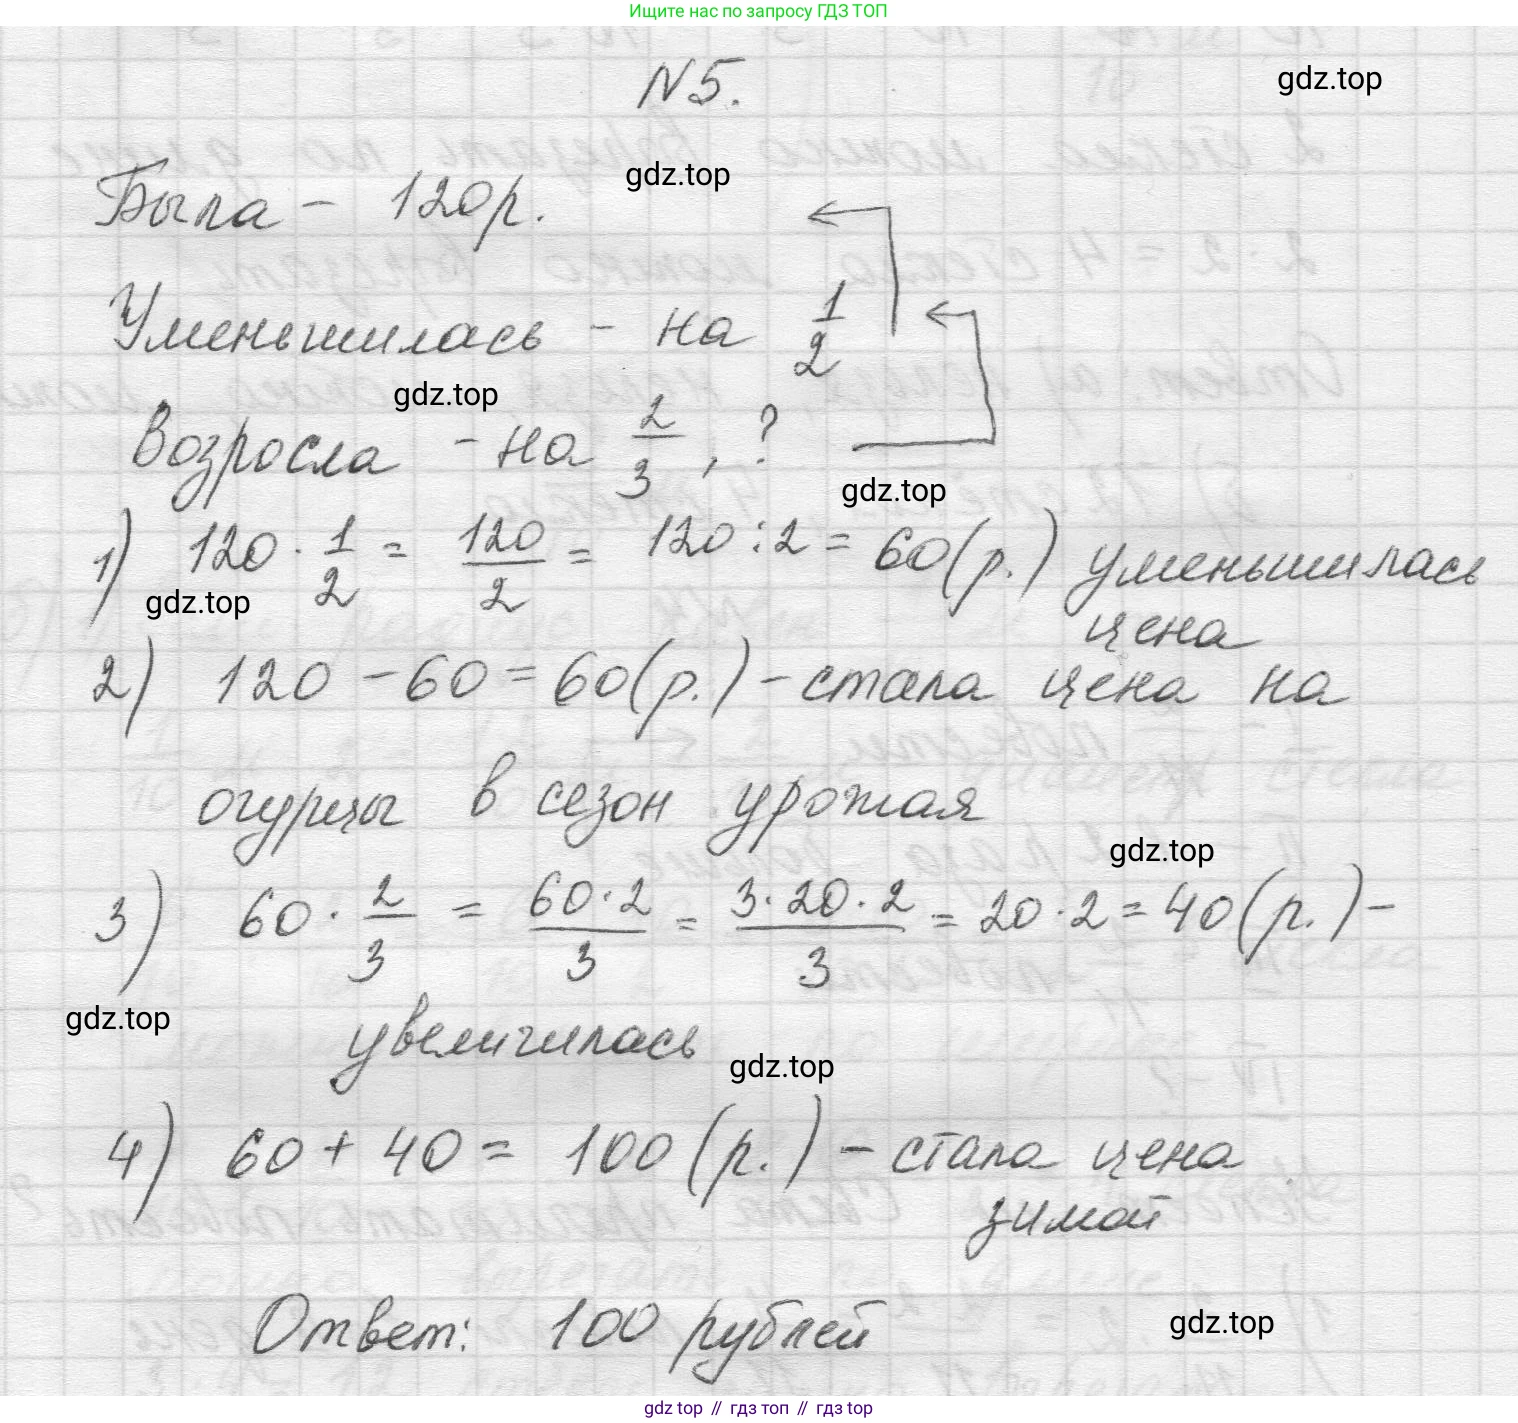 Ищите нас по запросу ГДЗ ТОП
N5.
gdz.top
gdz.top
Была - 120р.
Уменьшилась - на 1/2
gdz.top
Возросла - на 2/3, ?
gdz.top
1) 120 · 1/2 = 120/2 = 120 : 2 = 60(р.) уменьшилась
gdz.top
цена
2) 120 - 60 = 60(р.) - стала цена на
огурцы в сезон урожая
gdz.top
3) 60 · 2/3 = 60·2/3 = 3·20·2/3 = 20·2 = 40(р.) -
gdz.top
увеличилась
gdz.top
4) 60 + 40 = 100 (р.) - стала цена
зимой
Ответ: 100 рублей
gdz.top
gdz top // гдз топ // гдз top